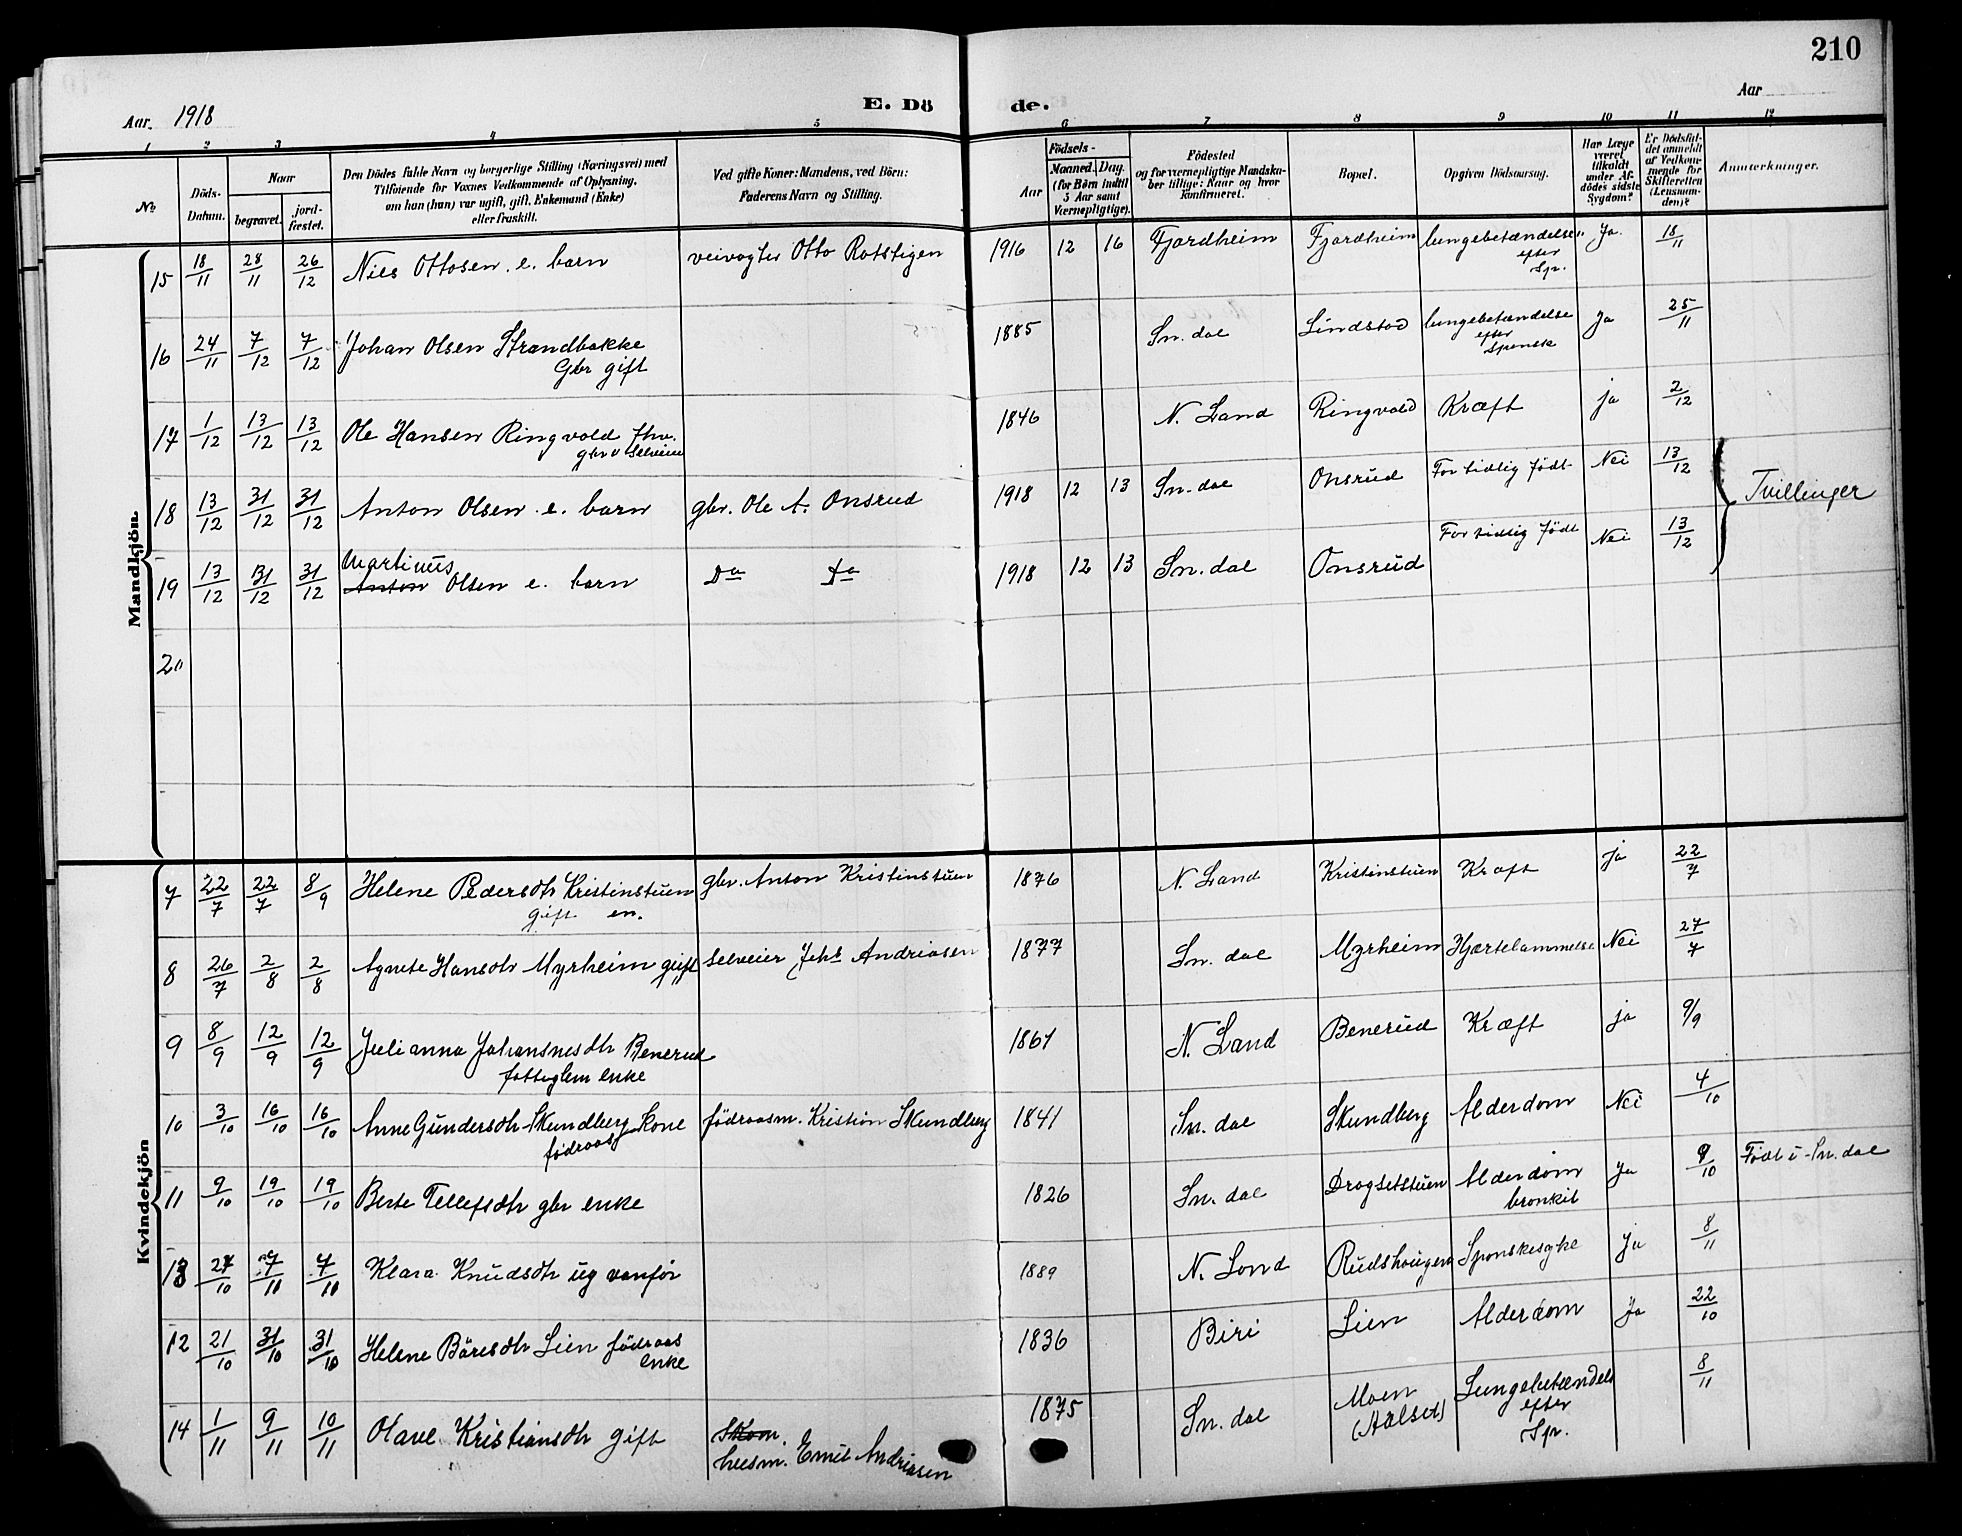 210
Aar 1918
E. Dö de.
Aar
1 2 3 4 5 6 7 8 9 10 11 12
No
Döds-Datum.
Naar
begravet.
jord-fæstet.
Den Dödes fulde Navn og borgerlige Stilling (Næringsvei) med
Tilföiende for Voxnes Vedkommende af Oplysning,
om han (hun) var ugift, gift, Enkemand (Enke)
eller fraskilt.
Ved gifte Koner: Mandens, ved Börn:
Faderens Navn og Stilling.
Födsels-
Aar
Maaned. Dag.
(for Börn indtil
5 Aar samt
Værnepligtige).
Födested
og for værnepligtige Mandska-
ber tillige: Naar og hvor
konfirmeret.
Bopæl.
Opgiven Dödsaarsag.
Har Læge
været
tilkaldt
under Af-
dödes sidste
Sygdom?
Er Dödsfal-
det anmeldt
af Vedkom-
mende for
Skifteretten
(Lensman-
den)?
Anmerkninger.
Mandkjön
15 18/11 28/11 26/12 Nils Ottosen e. barn veivogter Otto Rotstigen 1916 12 16 Fjordheim Fjordheim lungebetændelse efter Sp. Ja 18/11
16 24/11 7/12 7/12 Johan Olsen Strandbakke Gbr gift 1885 Sn. dal Lindstad lungebetændelse efter Spansk Ja 25/11
17 1/12 13/12 13/12 Ole Hansen Ringvold fhv. gbr selveier 1846 N. Land Ringvold Kræft ja 2/12
18 13/12 31/12 31/12 Anton Olsen e. barn gbr. Ole A. Onsrud 1918 12 13 Sn. dal Onsrud For tidlig födt Nei 13/12 Tvillinger
19 13/12 31/12 31/12 Martinus Anton Olsen e. barn Do Do 1918 12 13 Sn. dal Onsrud For tidlig födt Nei 13/12
20
Kvindekjön
7 22/7 22/7 8/9 Helene Pedersdtr Kristinstuen gift en. gbr. Anton Kristinstuen 1876 N. Land Kristinstuen Kræft ja 22/7
8 26/7 2/8 2/8 Agnete Hansdtr Myrheim gift selveier Johs Andriasen 1877 Sn. dal Myrheim Hjærtelammelse Nei 27/7
9 8/9 12/9 12/9 Julianna Johansnesdtr Benerud fattiglem enke 1861 N. Land Benerud Kræft ja 9/9
10 3/10 16/10 16/10 Anne Gundersdtr Skundberg Kone födraads födraadsm. Kristian Skundberg 1841 Sn. dal Skundberg Alderdom Nei 4/10
11 9/10 19/10 19/10 Berte Tellefsdtr gbr enke 1826 Sn. dal Dragsetstuen Alderdom bronkit Ja 9/10 Födt i Sn. dal
13 27/10 7/11 7/11 Klara Knudsdtr ug vanför 1889 N. Land Rudshaugen Spanskesyke Ja 8/11
12 21/10 31/10 31/10 Helene Böresdtr Lien födraads enke 1836 Biri Lien Alderdom Ja 22/10
14 1/11 9/11 10/11 Olave Kristiansdtr gift Skom. husm. Emil Andriasen 1875 Sn. dal Moen (Aalset) Lungebetændels efter Sp. 8/11